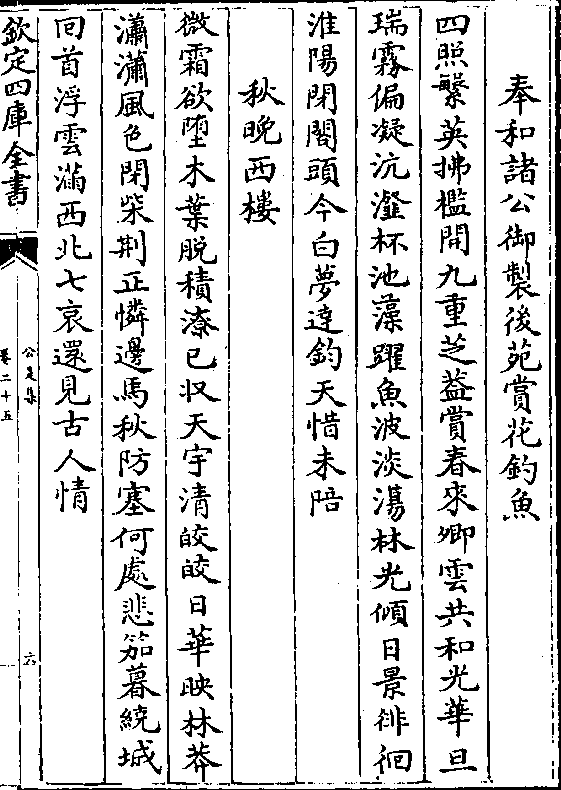 奉和諸公御製後苑賞花釣魚
四照繁英拂檻開九重芝葢賞春來卿雲共和光華旦
瑞霧偏凝沆瀣杯池藻躍魚波淡蕩林光傾日景徘徊
淮陽閉閤頭今白夢逹鈞天惜未陪
秋晚西樓
微霜欲墮木葉脱積潦已收天宇清皎皎日華映林莽
瀟瀟風色閉柴荆正憐邊馬秋防塞何處悲笳暮繞城
回首浮雲滿西北七哀還見古人情
欽定四庫全書
公是集
卷二十五
六